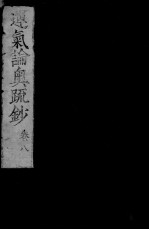 運氣論奧疏鈔 卷八